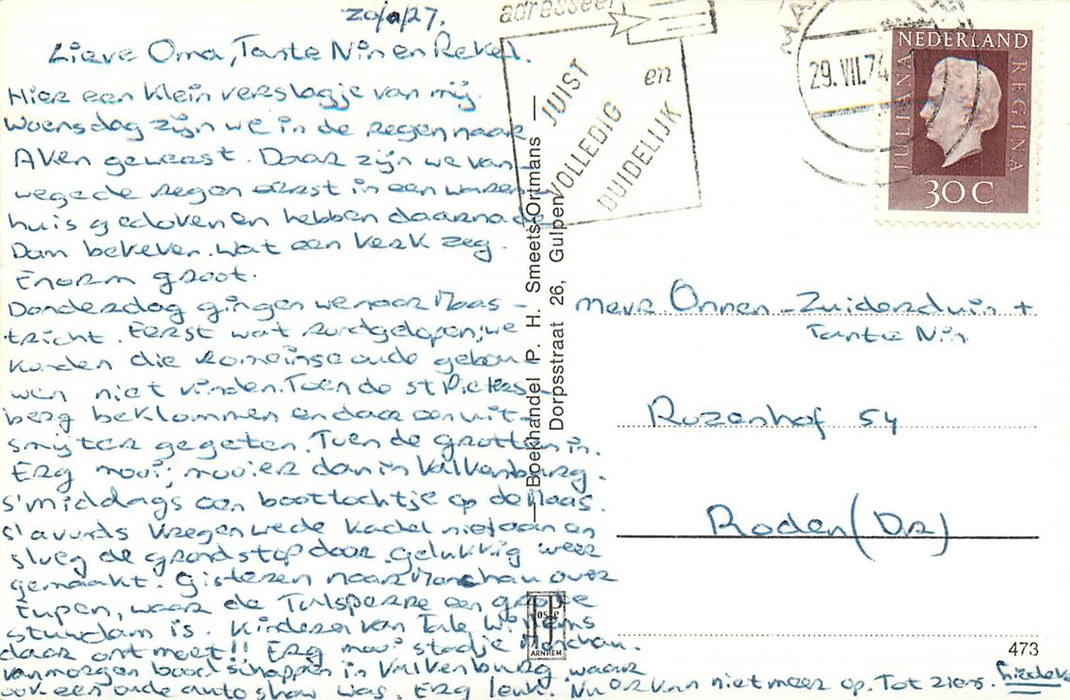 Lieve Oma, Tante Nin en Rekel.
Hier een klein verslagje van mij.
Woensdag zijn we in de regen naar
Aken geweest. Daar zijn we van-
wege de regen eerst in een waren-
huis gedoken en hebben daarna de
Dom bekeken. Wat een kerk zeg.
Enorm groot.
Donderdag gingen we naar Maas-
tricht. Eerst wat rondgelopen, we
konden die romeinse oude gebou-
wen niet vinden. Toen de st Pieters-
berg beklommen en daar een uit-
smijter gegeten. Toen de grotten in.
Erg mooi; mooier dan in Valkenburg.
s'middags een boottochtje op de Maas.
s'avonds kregen we de kachel niet aan en
sloeg de grondstop door. Gelukkig weer
gemaakt. Gisteren naar Monschau over
Eupen, waar de Talsperre een grote
stuwdam is. Kinderen van Tale Willems
daar ontmoet!! Erg mooi stadje Monschau.
Vanmorgen boodschappen in Valkenburg. waar
ook een oude autoshow was. Erg leuk. Nu kan niet meer op. Tot ziens.
Liedeke
adresseer
JUIST
en
VOLLEDIG
DUIDELIJK
29.VII.74
NEDERLAND
JULIANA
REGINA
30 C
Boekhandel P. H. Smeets-Ortmans
Dorpsstraat 26, Gulpen
Mevr Onnen-Zuiderduin +
Tante Nin
Rozenhof 54
Roden (Dr)
JosPé
ARNHEM
473